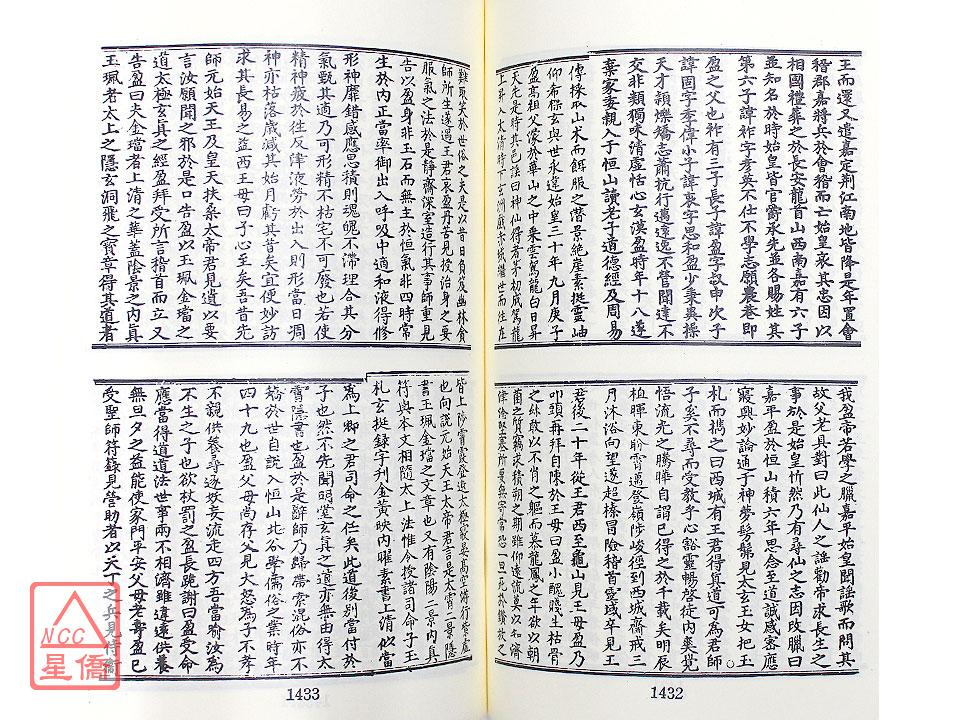 王而還又遣嘉定荆江南地皆降是年置會
稽郡嘉將兵於會稽而亡始皇哀其忠因以
相國禮葬之於長安龍首山西南嘉有六子
並知名於時始皇皆官爵承先並各賜姓其
第六子諱祚字彦英不仕不學志願農巷即
盈之父也祚有三子長子諱盈字叔申次子
諱固字季偉小子諱衷字思和盈少秉異操
天才頴爍矯志蕭抗行邁遠逸不營聞達不
交非類獨味清虛恬心玄漠盈時年十八遂
棄家委親入于恒山讀老子道德經及周易
傳採取山朮而餌服之潛景絶崖素挺靈岫
仰希標玄與世永違始皇三十年九月庚子
盈高祖父濛於華山之中乘雲駕龍白日昇
天先是時其邑謠曰神仙得者茅初成駕龍
上昇入太清時下玄洲戲赤城繼世而往在
我盈帝若學之臘嘉平始皇聞謡歌而問其
故父老具對曰此仙人之謡勸帝求長生之
事於是始皇忻然乃有尋仙之志因改臘曰
嘉平盈於恒山積六年思念至道誠感密應
寢興妙論通于神夢髣髴見太玄玉女把玉
札而携之曰西城有王君得真道可為君師
子奚不尋而受教乎心豁靈暢啓徒内奭覺
悟流光之騰曄自謂已得之於千載矣明辰
植暉東盼霄邁登嶺陟峻徑到西城齋戒三
月沐浴向望遂超榛冒險稽首靈域卒見王
君後二十年從王君西至龜山見王母盈乃
叩頭再拜自陳於王母曰盈小醜賤生枯骨
之餘敢以不肖之軀而慕龍鳳之年欲以朝
菌之質竊求積朔之期雖仰遠流莫以知濟
1432
難取笑於世俗之夫是以昔日負笈幽林貪
師所生遂過王君哀盈丹苦見授治身之要
服氣之法於是静齋深室造行其事師重見
告以盈身非玉石而無主於恒氣非四時常
生於内正當率御出入呼吸中適和液得修
形神靡錯感應思積則魂魄不滯理合其分
氣甄其適乃可形精不枯宅不可廢也若使
精神疲於往反津液勞於出入則形當日凋
神亦枯落歲減其始月虧其昔矣宜便妙訪
求其長易之益西王母曰子心至矣吾昔先
師元始天王及皇天扶桑太帝君見遺以要
言汝願聞之邪於是口告盈以玉珮金璫之
道太極玄真之經盈拜受所言稽首而立又
告盈曰夫金璫者上清之華蓋陰景之内真
玉珮者太上之隱玄洞飛之寶章得其道者
皆上陟霄霞登遊太極
也向説元始天王太帝君言是太霄二景隱
書玉珮金璫之文章也又有陰陽二景内真
符與本文相隨太上法惟令授諸司命子玉
札玄挺録字刋金黄映内曜素書上清似當
為上卿之君司命之任矣此道後别當付於
子也然不先聞明堂玄真之道亦無由得太
霄隱書也盈於是辭師乃歸帶索混俗亦不
矜於世自説入恒山北谷學儒俗之業時年
四十九也盈父母尚存父見大怒為子不孝
不親供養尋逐妖妄流走四方吾當喻汝為
不生之子也欲杖罰之盈長跪謝曰盈受命
應當得道道法世事兩不相濟雖違遠供養
無旦夕之益能使家門平安父母老壽盈已
受聖師符籙見營助者以天丁之兵見侍衛
1433
NCC
星僑